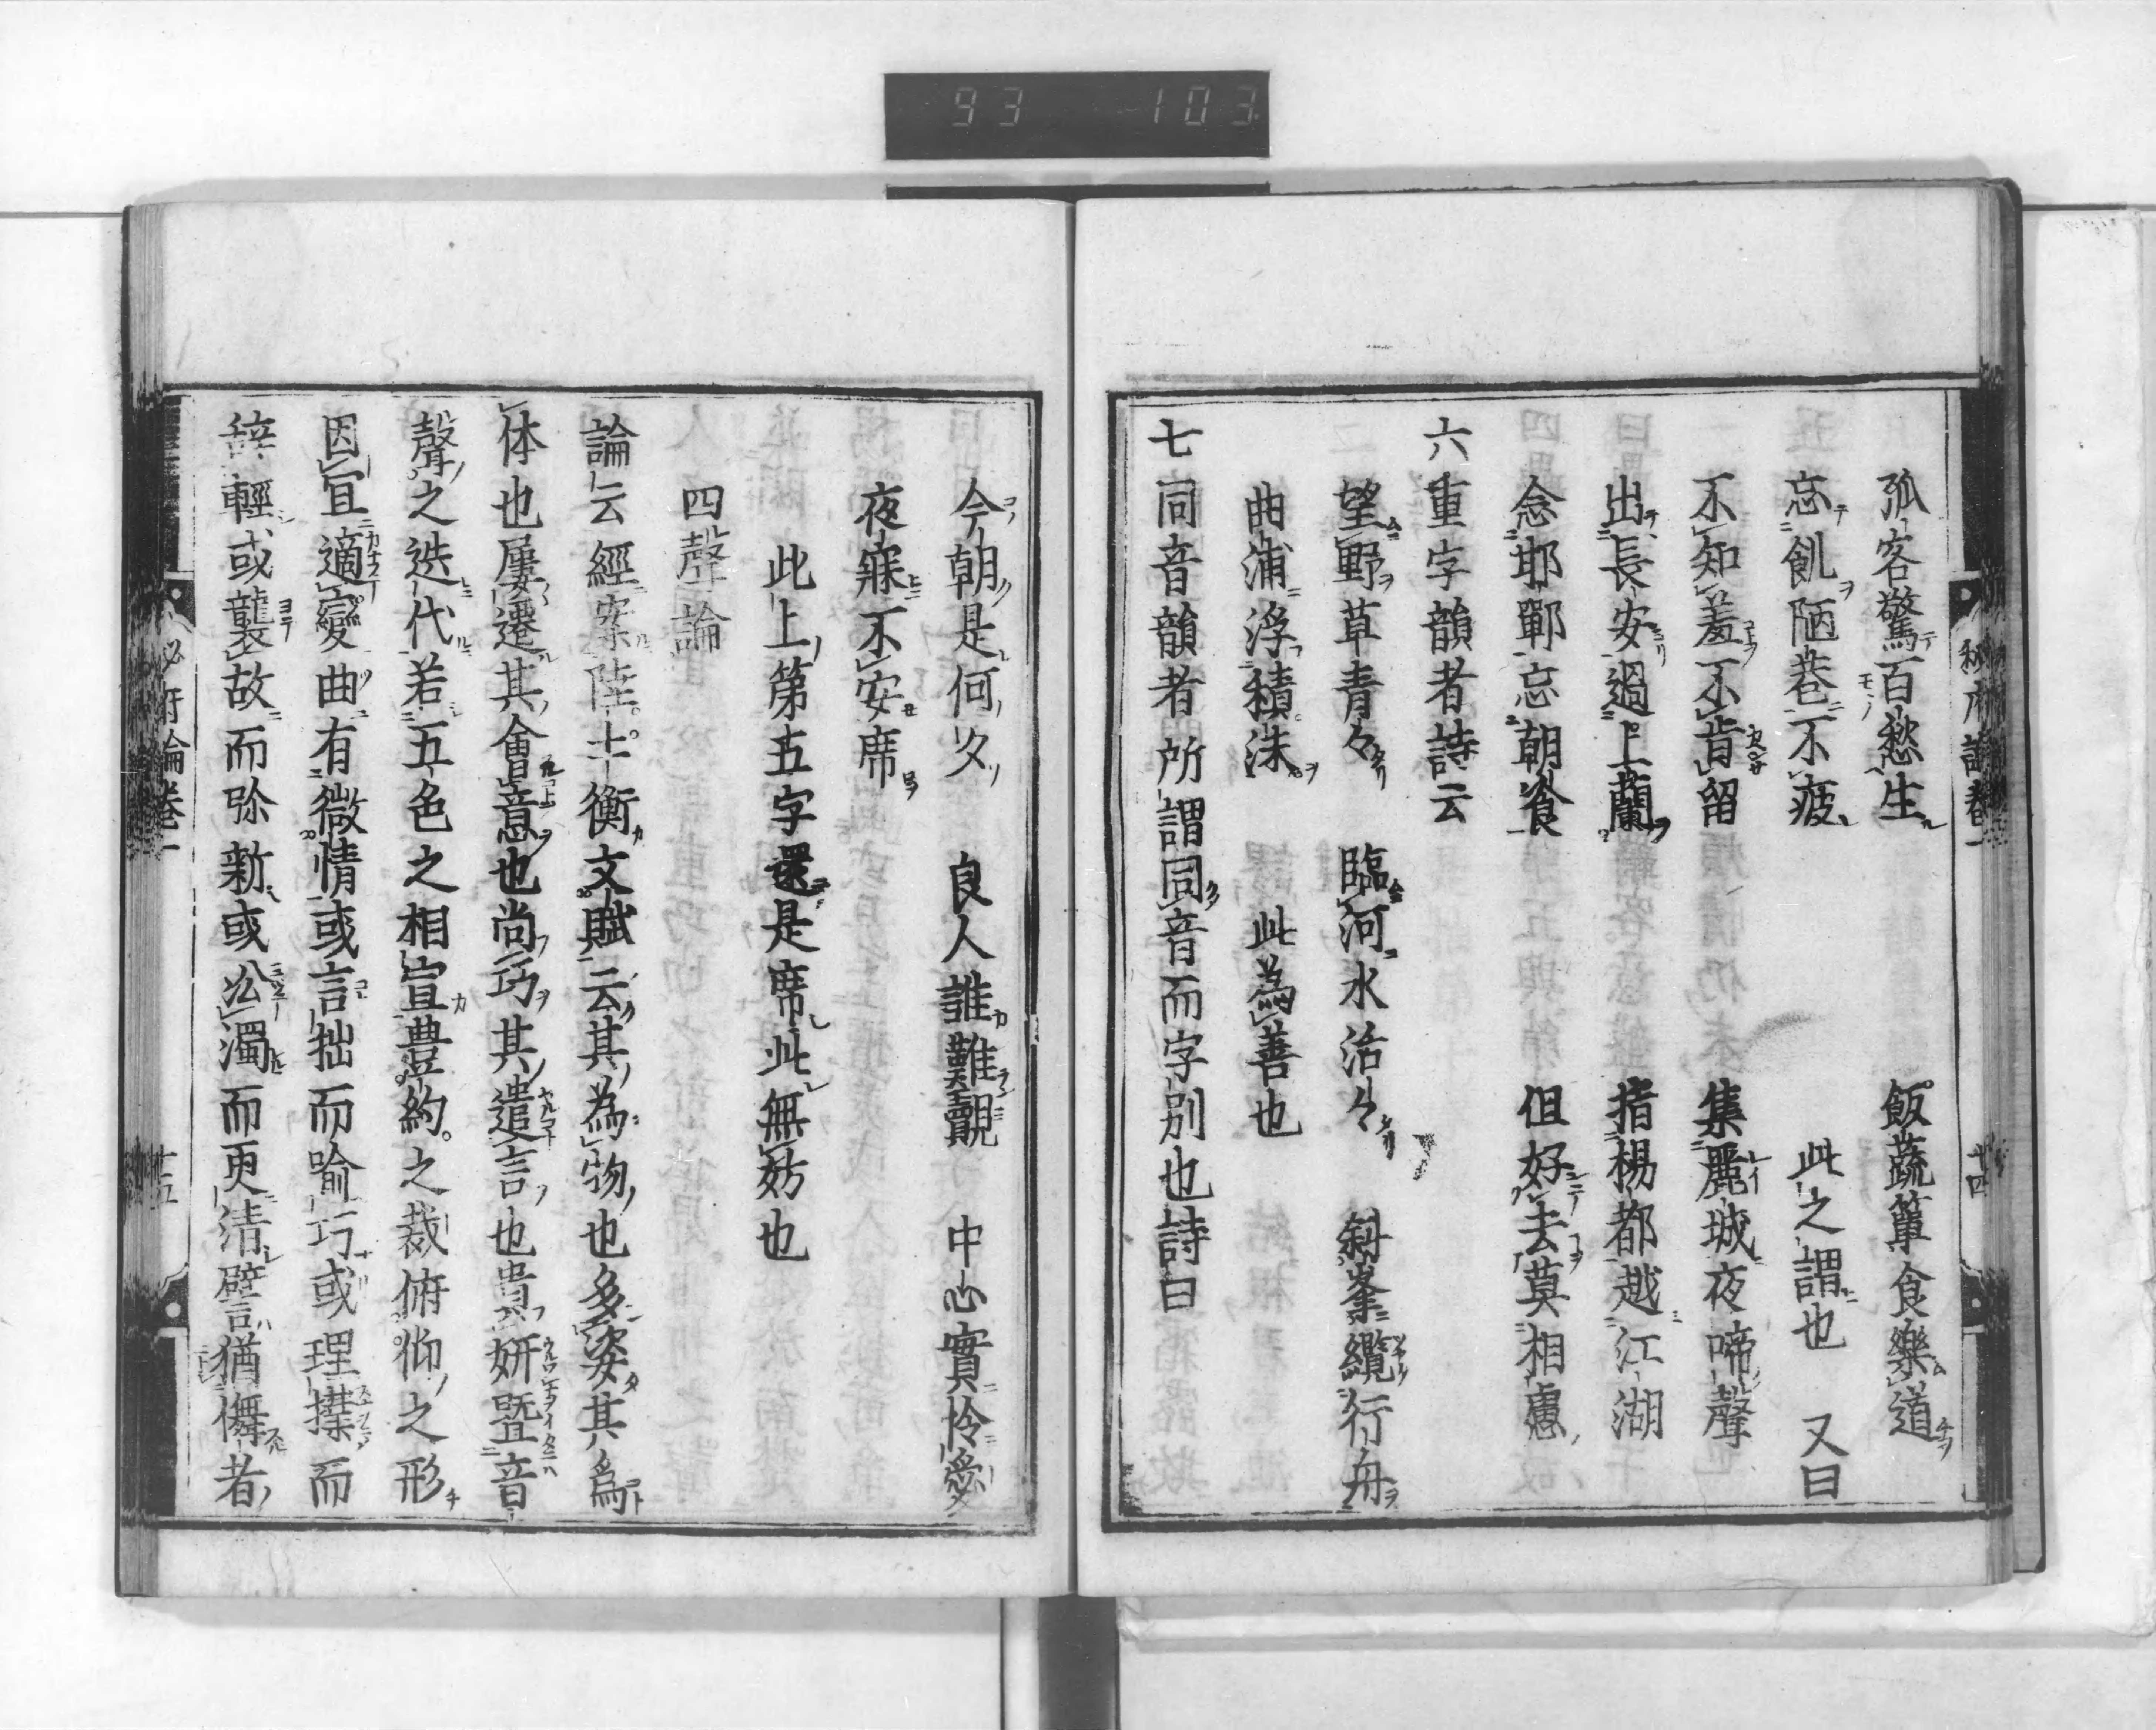 93 103
秘府論卷一 十四
孤客驚百愁生 飯蔬簞食樂道
忘飢陋巷不疲 此之謂也 又曰
不知羞不肯留 集麗城夜啼聲
出長安過上蘭 指楊都越江湖
念邯鄲忘朝飡 但好去莫相慮
六重字韻者詩云
望野草青々 臨河水活々 斜峯纜行舟
曲浦浮積沫 此為善也
七同音韻者所謂同音而字別也詩曰
今朝是何夕 良人誰難覯 中心實怜愛
夜寐不安席
此上第五字還是席此無妨也
四聲論
論云經案陸士衡文賦云其為物也多姿其為
体也屢遷其會意也尚巧其遣言也貴妍暨音
聲之迭代若五色之相宣豊約之裁俯仰之形
因宜適變曲有微情或言拙而喻巧或理擈而
辞輕或襲故而弥新或㳂濁而更清譬猶儛者
必府論卷一 十五